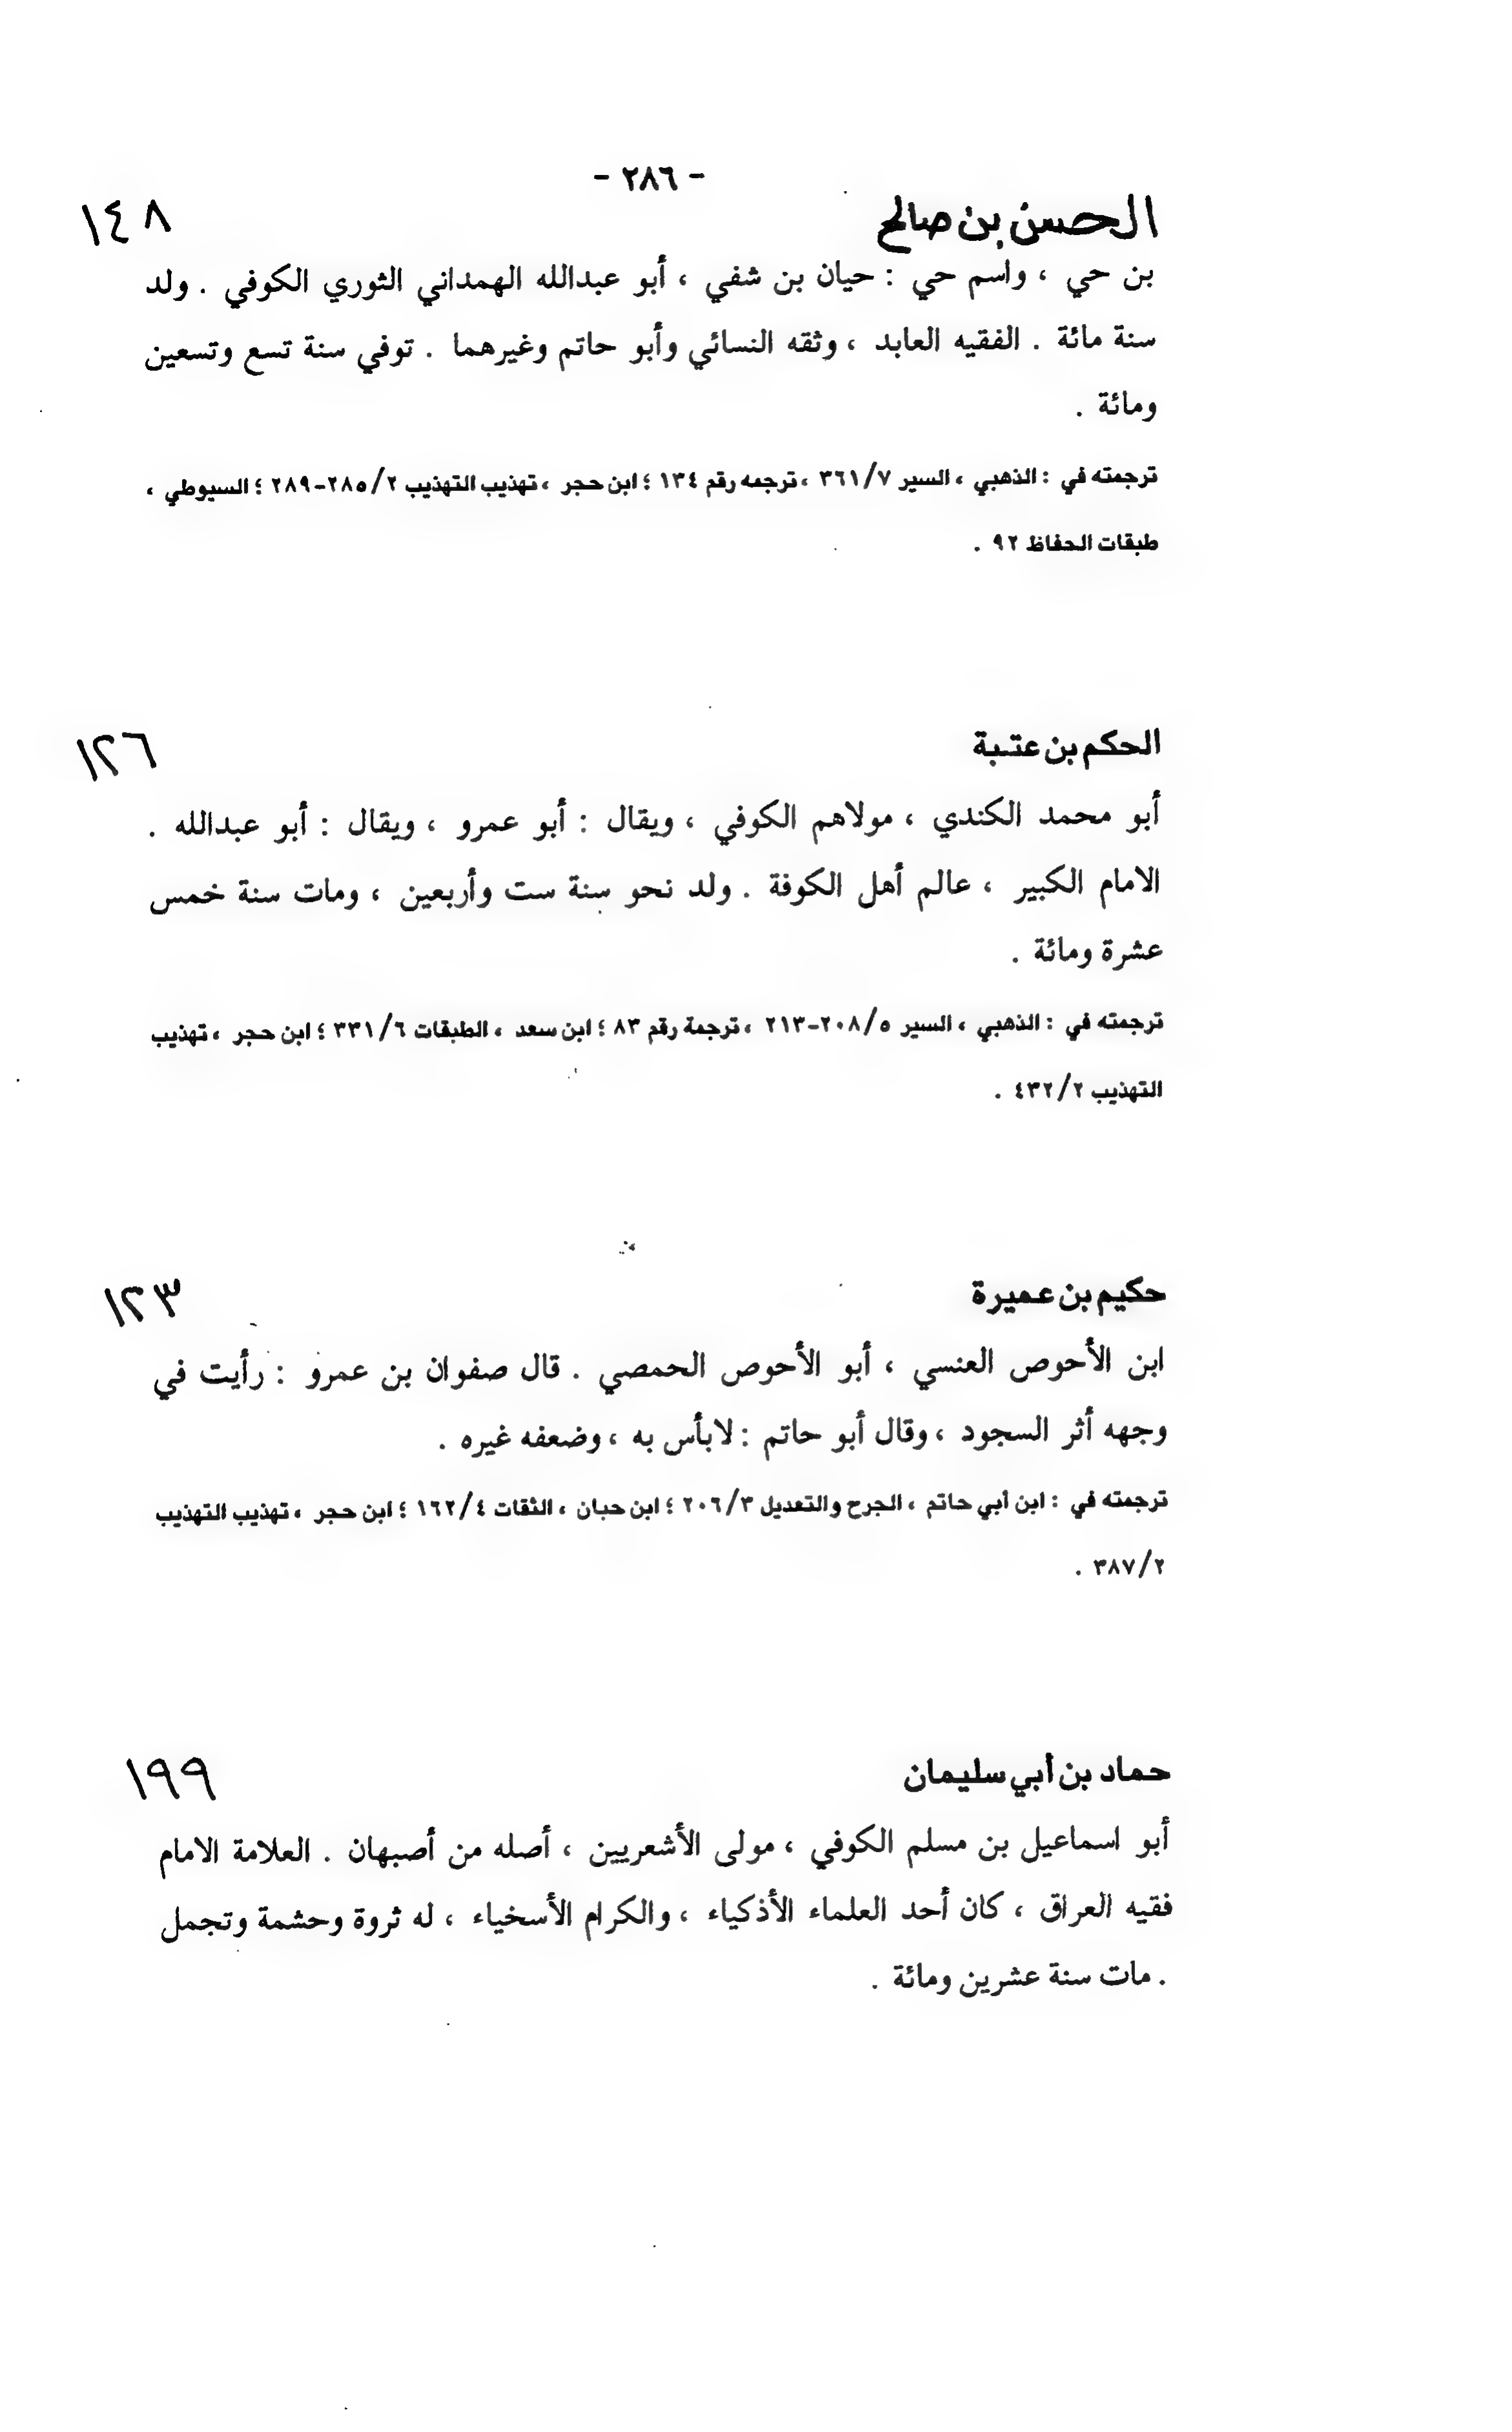 - ٢٨٦ -
الحسن بن صالح ١٤٨
بن حي ، واسم حي : حيان بن شفي ، أبو عبدالله الهمداني الثوري الكوفي . ولد
سنة مائة . الفقيه العابد ، وثقه النسائي وأبو حاتم وغيرهما . توفي سنة تسع وتسعين
ومائة .
ترجمته في : الذهبي ، السير ٣٦١/٧ ، ترجمه رقم ١٣٤ ؛ ابن حجر ، تهذيب التهذيب ٢٨٥/٢-٢٨٩ ؛ السيوطي ،
طبقات الحفاظ ٩٢ .
الحكم بن عتبة ١٢٦
أبو محمد الكندي ، مولاهم الكوفي ، ويقال : أبو عمرو ، ويقال : أبو عبدالله .
الامام الكبير ، عالم أهل الكوفة . ولد نحو سنة ست وأربعين ، ومات سنة خمس
عشرة ومائة .
ترجمته في : الذهبي ، السير ٢٠٨/٥-٢١٣ ، ترجمة رقم ٨٣ ؛ ابن سعد ، الطبقات ٣٣١/٦ ؛ ابن حجر ، تهذيب
التهذيب ٤٣٢/٢ .
حكيم بن عميرة ١٢٣
ابن الأحوص العنسي ، أبو الأحوص الحمصي . قال صفوان بن عمرو : رأيت في
وجهه أثر السجود ، وقال أبو حاتم : لابأس به ، وضعفه غيره .
ترجمته في : ابن أبي حاتم ، الجرح والتعديل ٢٠٦/٣ ؛ ابن حبان ، الثقات ١٦٢/٤ ؛ ابن حجر ، تهذيب التهذيب
٣٨٧/٢ .
حماد بن أبي سليمان ١٩٩
أبو اسماعيل بن مسلم الكوفي ، مولى الأشعريين ، أصله من أصبهان . العلامة الامام
فقيه العراق ، كان أحد العلماء الأذكياء ، والكرام الأسخياء ، له ثروة وحشمة وتجمل
. مات سنة عشرين ومائة .